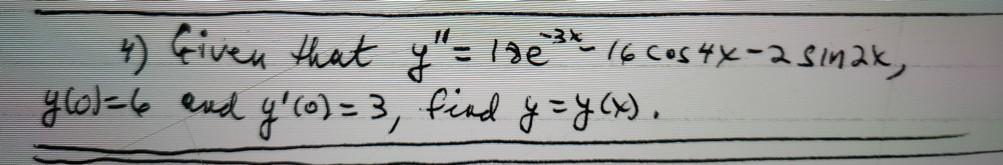 4) Given that y'' = 18e^{-3x} - 16 cos 4x - 2 sin 2x,
y(0)=6 and y'(0)=3, find y = y(x).